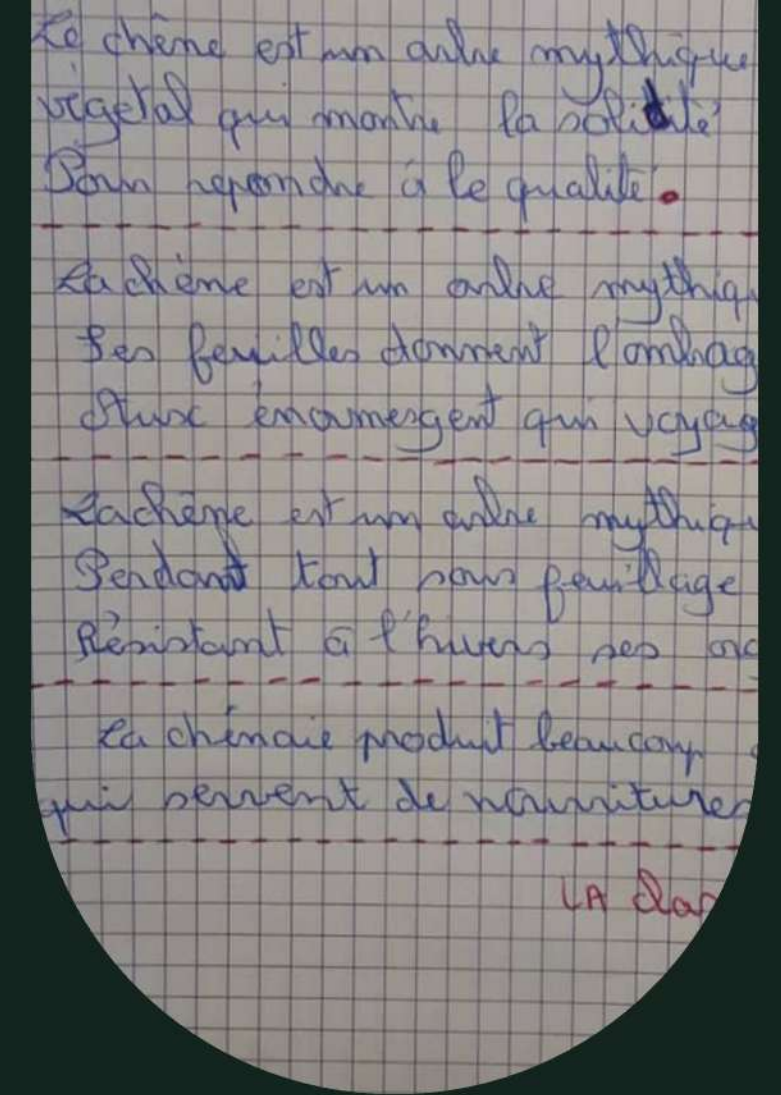 Le chêne est un arbre mythique
végétal qui montre la solidité
Pour repondre à le qualité.
La chêne est un arbre mythiqu
Ses feuilles donnent l'ombrag
Aux énamergent qui voyag
La chêne est un arbre mythiqu
Pendant tout sous feuillage
Résistant à l'hivers ses
La chênaie produit beaucoup
qui servent de nourritures
LA clas